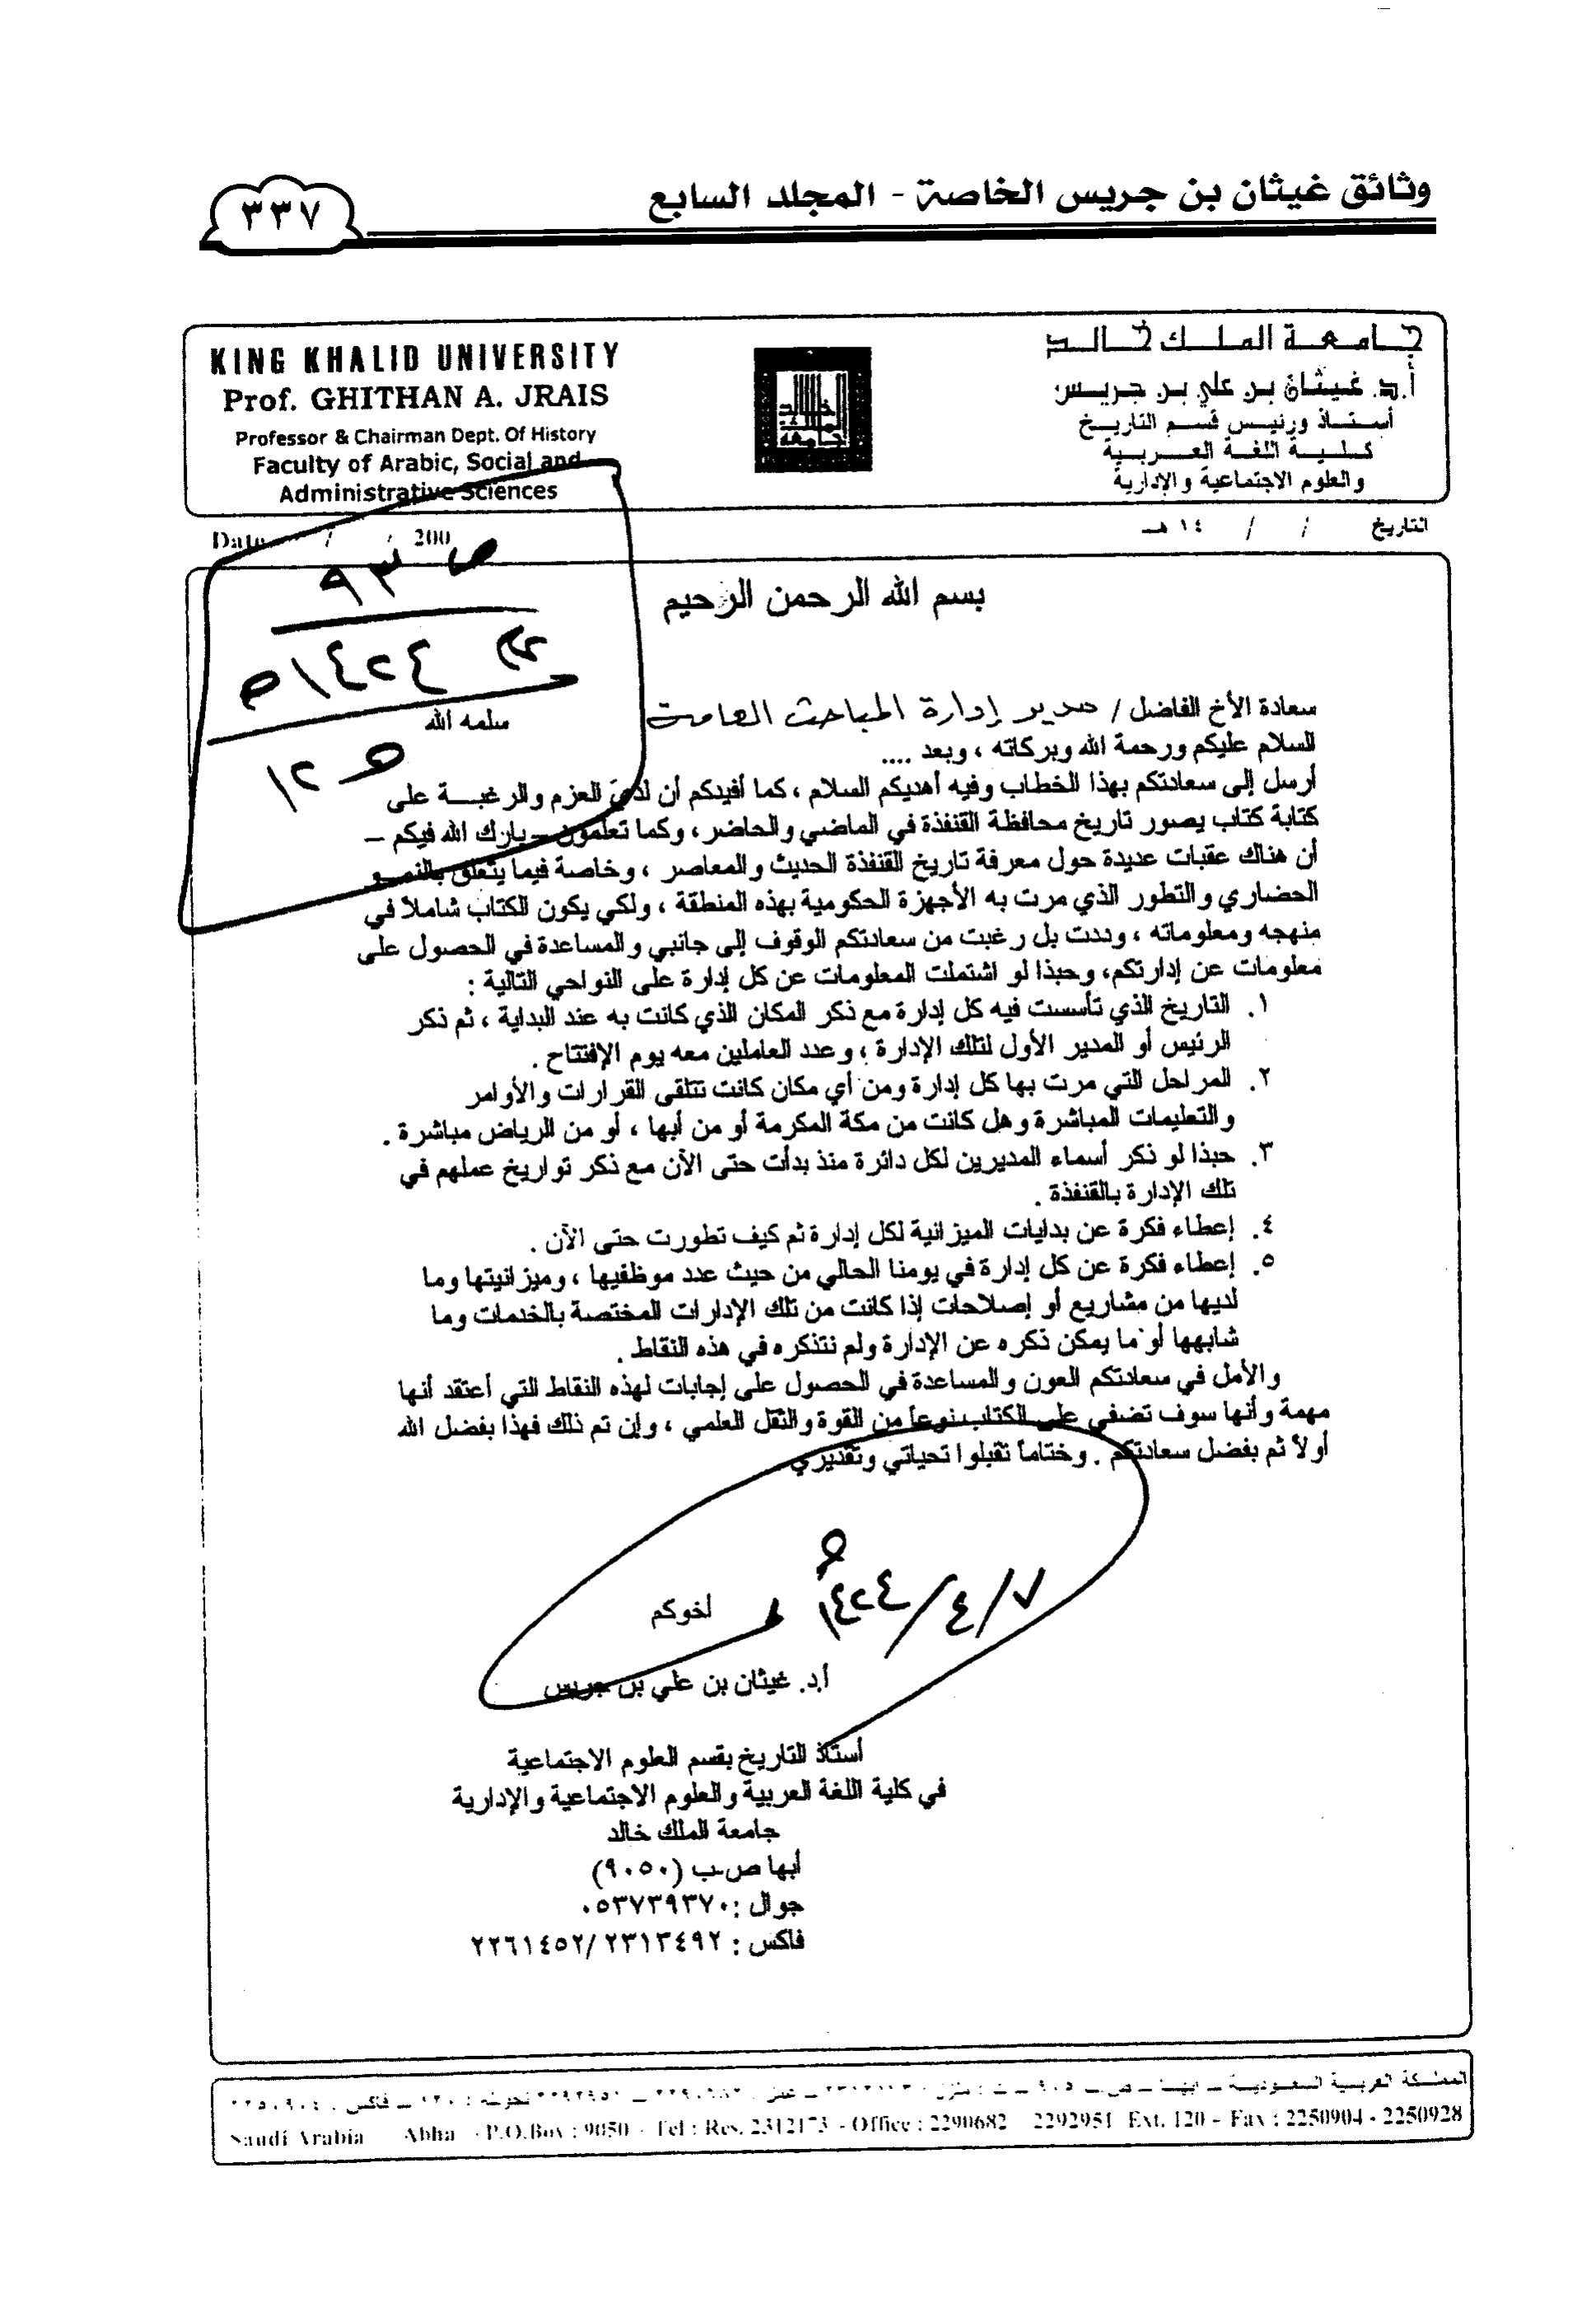 وثائق غيثان بن جريس الخاصة - المجلد السابع
٣٣٧
جامعة الملك خالد
أ.د. غيثان بن علي بن جريس
أستاذ ورئيس قسم التاريخ
كلية اللغة العربية
والعلوم الاجتماعية والإدارية
KING KHALID UNIVERSITY
Prof. GHITHAN A. JRAIS
Professor & Chairman Dept. Of History
Faculty of Arabic, Social and
Administrative Sciences
التاريخ / / ١٤ هـ
Date / / 200
ص ٩٣
١٤٢٤هـ
١٢
بسم الله الرحمن الرحيم
سعادة الأخ الفاضل / مدير إدارة المباحث العامة سلمه الله
السلام عليكم ورحمة الله وبركاته ، وبعد ....
أرسل إلى سعادتكم بهذا الخطاب وفيه أهديكم السلام ، كما أفيدكم أن لدي العزم والرغبـــة على
كتابة كتاب يصور تاريخ محافظة القنفذة في الماضي والحاضر، وكما تعلمون – بارك الله فيكم –
أن هناك عقبات عديدة حول معرفة تاريخ القنفذة الحديث والمعاصر ، وخاصة فيما يتعلق بالنمـــو
الحضاري والتطور الذي مرت به الأجهزة الحكومية بهذه المنطقة ، ولكي يكون الكتاب شاملاً في
منهجه ومعلوماته ، وددت بل رغبت من سعادتكم الوقوف إلى جانبي والمساعدة في الحصول على
معلومات عن إدارتكم، وحبذا لو اشتملت المعلومات عن كل إدارة على النواحي التالية :
١. التاريخ الذي تأسست فيه كل إدارة مع ذكر المكان الذي كانت به عند البداية ، ثم ذكر
الرئيس أو المدير الأول لتلك الإدارة ، وعدد العاملين معه يوم الإفتتاح .
٢. المراحل التي مرت بها كل إدارة ومن أي مكان كانت تتلقى القرارات والأوامر
والتعليمات المباشرة وهل كانت من مكة المكرمة أو من أبها ، أو من الرياض مباشرة .
٣. حبذا لو ذكر أسماء المديرين لكل دائرة منذ بدأت حتى الآن مع ذكر تواريخ عملهم في
تلك الإدارة بالقنفذة .
٤. إعطاء فكرة عن بدايات الميزانية لكل إدارة ثم كيف تطورت حتى الآن .
٥. إعطاء فكرة عن كل إدارة في يومنا الحالي من حيث عدد موظفيها ، وميزانيتها وما
لديها من مشاريع أو إصلاحات إذا كانت من تلك الإدارات المختصة بالخدمات وما
شابهها أو ما يمكن ذكره عن الإدارة ولم نتذكره في هذه النقاط .
والأمل في سعادتكم العون والمساعدة في الحصول على إجابات لهذه النقاط التي أعتقد أنها
مهمة وأنها سوف تضفي على الكتاب نوعاً من القوة والثقل العلمي ، وإن تم ذلك فهذا بفضل الله
أولاً ثم بفضل سعادتكم . وختاماً تقبلوا تحياتي وتقديري
٧/٤/١٤٢٤هـ
أخوكم
أ.د. غيثان بن علي بن جريس
أستاذ التاريخ بقسم العلوم الاجتماعية
في كلية اللغة العربية والعلوم الاجتماعية والإدارية
جامعة الملك خالد
أبها ص.ب (٩٠٥٠)
جوال : ٠٥٣٧٣٩٣٧٠
فاكس : ٢٢٦١٤٥٢/٢٣١٣٤٩٢
المملكة العربية السعودية – أبها – ص.ب
Saudi Arabia Abha - P.O.Box : 9050 - Tel : Res. 2312173 - Office : 2290682 2292951 Ext. 120 - Fax : 2250904 - 2250928